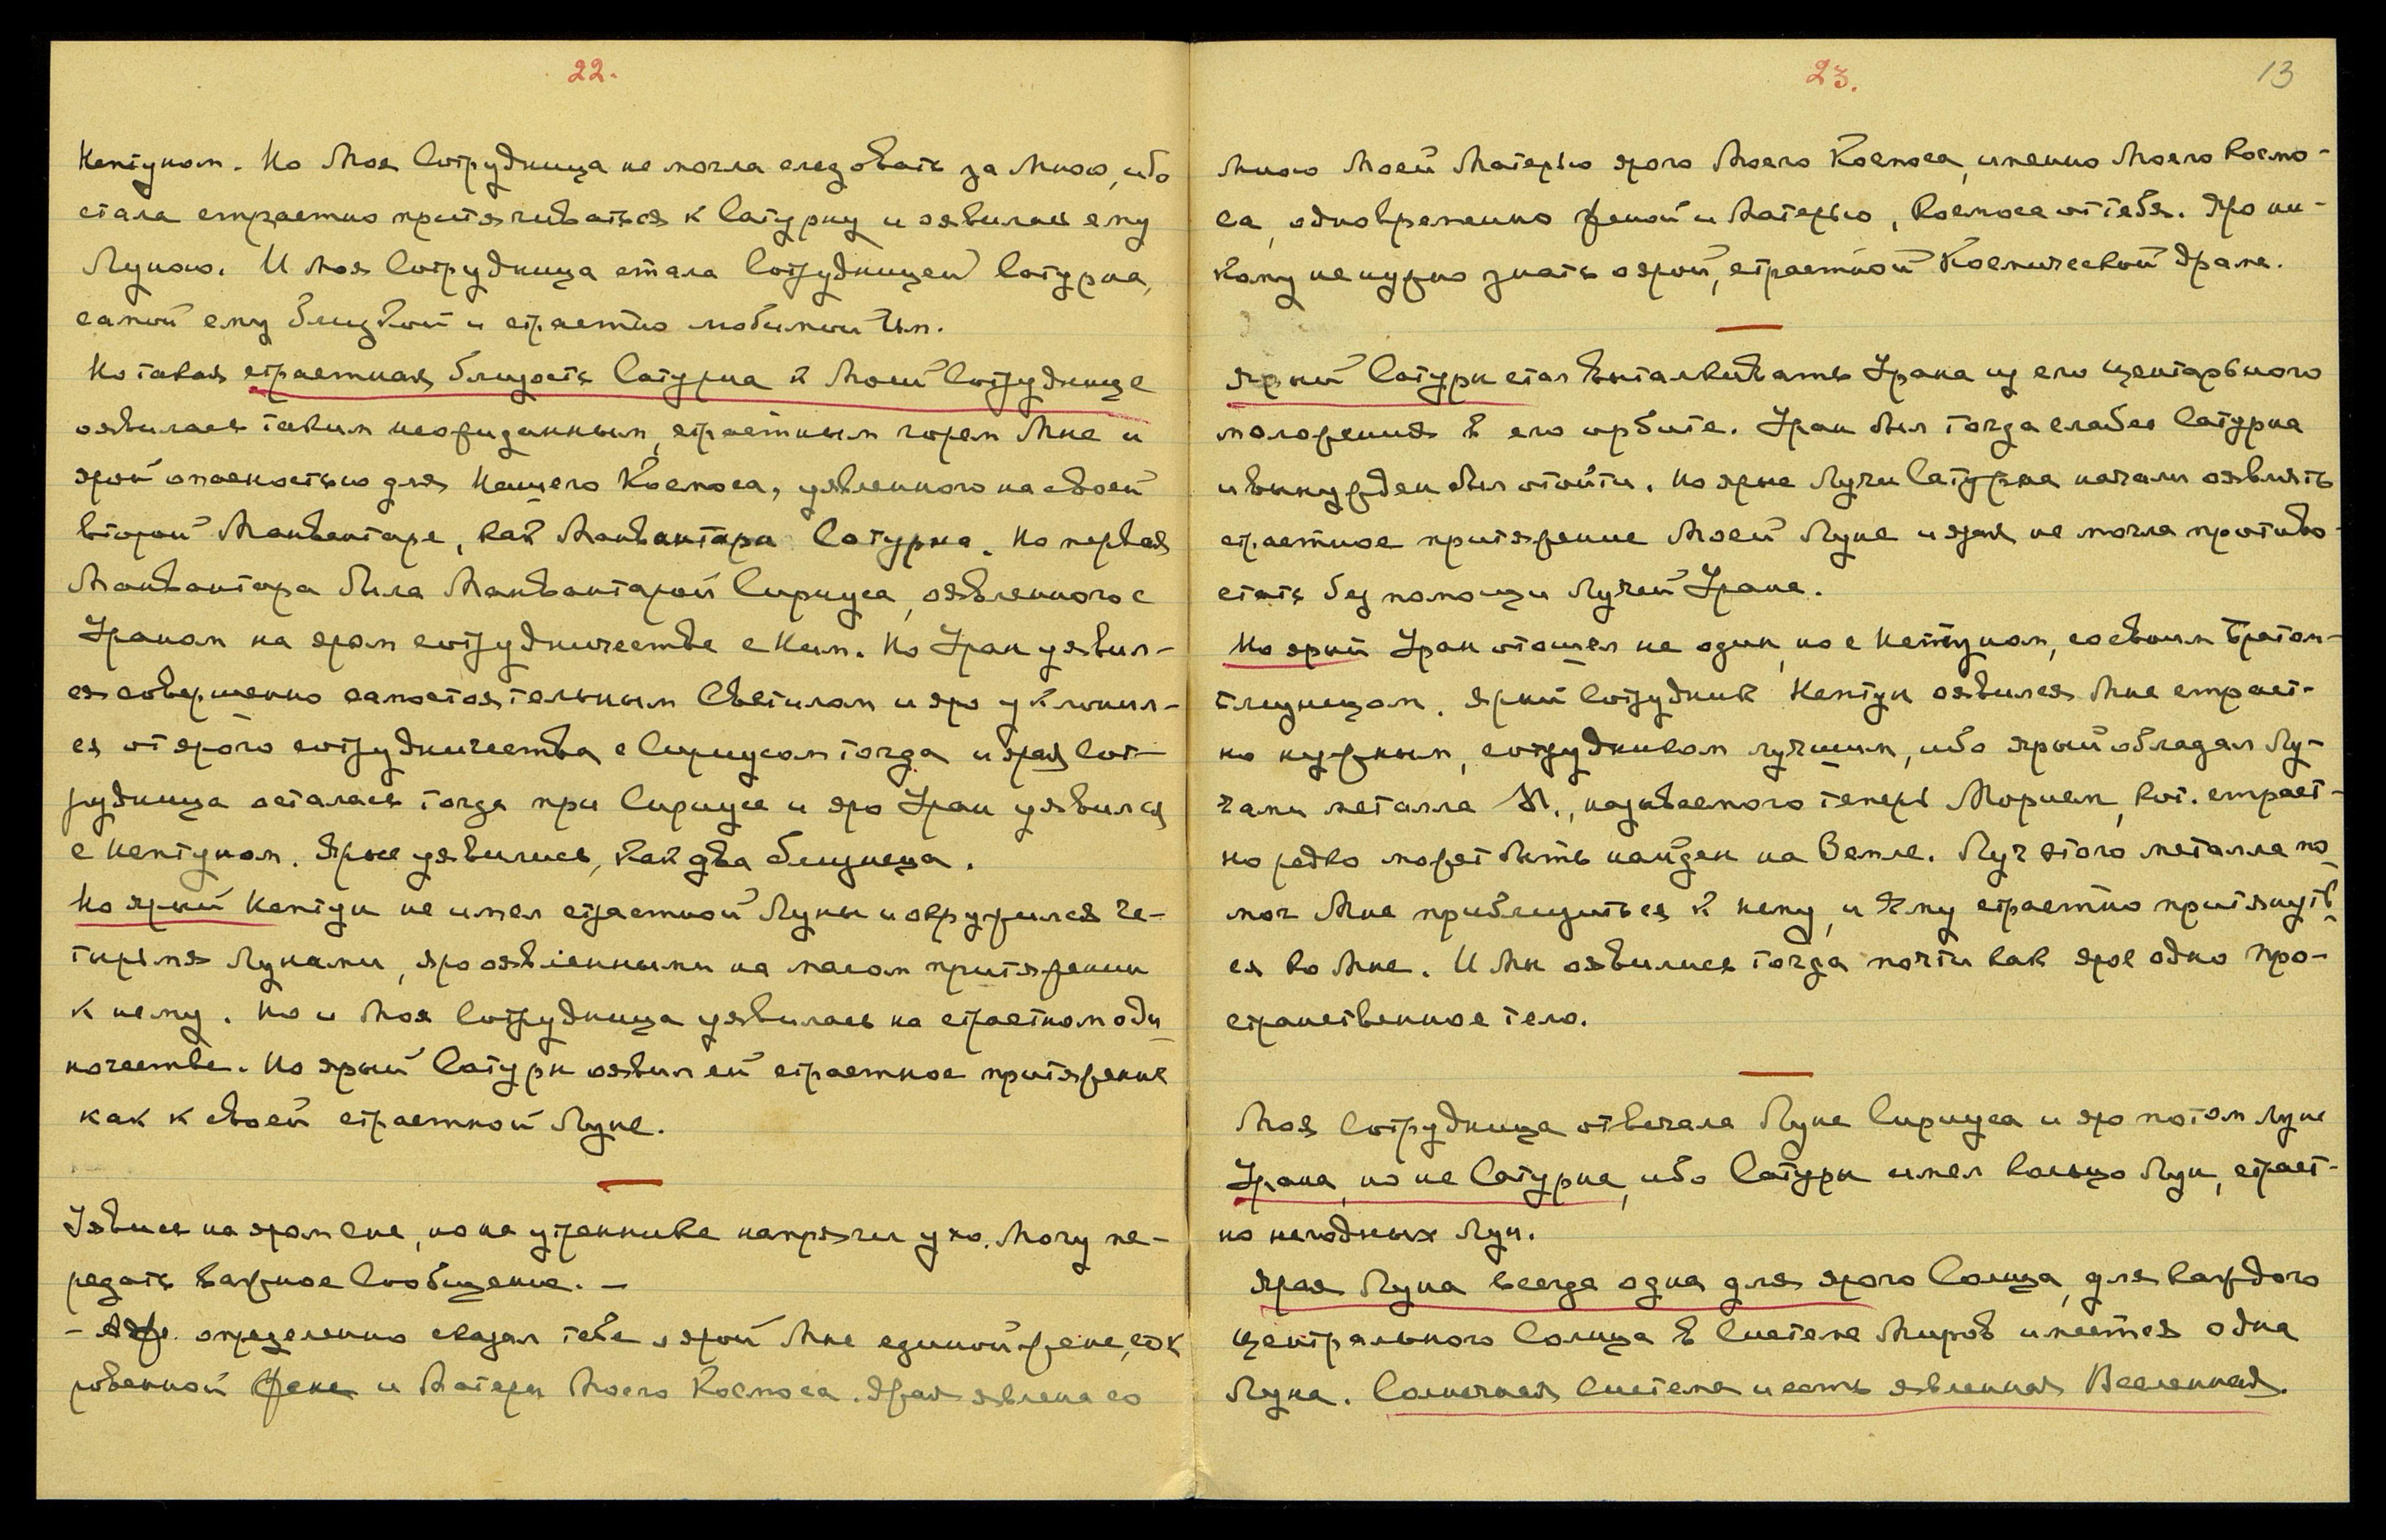 22.
Нептуном. Но Моя Сотрудница не могла следовать за Мною, ибо
стала страстно притягиваться к Сатурну и оявилась ему
Луною. И Моя Сотрудница стала Сотрудницей Сатурна,
самой ему близкой и страстно любимой Им.
Но такая страстная близость Сатурна к Моей Сотруднице
оявилась таким неожиданным, страстным горем Мне и
ярой опасностью для Нашего Космоса, уявленного на своей
второй Манвантаре, как Манвантары Сатурна. Но первая
Манвантара была Манвантарой Сириуса, оявленного с
Ураном на яром сотрудничестве с Ним. Но Уран уявил-
ся совершенно самостоятельным Светилом и яро уклонил-
ся от ярого сотрудничества с Сириусом тогда и ярая Сот-
рудница осталась тогда при Сириусе и яро Уран уявился
с Нептуном. Ярые уявились, как два близнеца.
Но ярый Нептун не имел страстной Луны и окружился че-
тырьмя Лунами, яро оявленными на малом притяжении
к нему. Но и Моя Сотрудница уявилась на страстном оди-
ночестве. Но ярый Сатурн оявил ей страстное притяжение
как к своей страстной Луне.
Уявись на яром сне, но на утреннике напряги ухо. Могу пе-
редать важное Сообщение. –
– определенно сказал тебе о ярой Мне единой жене, сок
ровенной Жене и Матери Моего Космоса. Ярая явлена со
23.
13
Мною Моей Матерью ярого Моего Космоса, именно Моего Космо-
са, одновременно женой и Матерью, Космоса от тебя. Яро ни-
кому не нужно знать о ярой, страстной Космической драме.
Ярый Сатурн стал выталкивать Урана из его центарьного
положения в его орбите. Уран был тогда слабее Сатурна
и вынужден был отойти. Но ярые Лучи Сатурна начали оявлять
страстное притяжение Моей Луне и ярая не могла противо-
стать без помощи Лучей Урана.
Но ярый Уран отошел не один, но с Нептуном, со своим Братом-
близнецом. Ярый Сотрудник Нептун оявился Мне страст-
но нужным, сотрудником лучшим, ибо ярый обладал Лу-
чами металла М., называемого теперь Морием, кот. страст-
но редко может быть найден на Земле. Луч этого металла по-
мог Мне приблизиться к нему, и Ему страстно притянуть-
ся ко Мне. И Мы оявились тогда почти как ярое одно про-
странственное тело.
Моя Сотрудница отвечала Луне Сириуса и яро потом Луне
Урана, но не Сатурна, ибо Сатурн имел кольцо Лун, страст-
но негодных Лун.
Ярая Луна всегда одна для ярого Солнца, для каждого
центрального Солнца в Системе Миров имеется одна
Луна. Солнечная Система и есть явленная Вселенная.